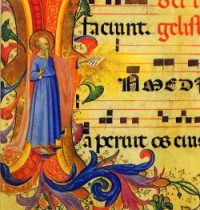 faciunt. gelist
N MEDI
aperuit os eius